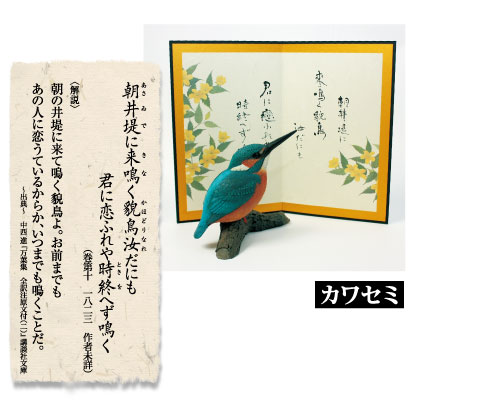 朝井堤に来鳴く貌鳥汝だにも
あさゐで きな かほどりなれ
君に恋ふれや時終へず鳴く
ときを
（巻第十 一八二三 作者未詳）
〈解説〉
朝の井堤に来て鳴く貌鳥よ。お前までも
あの人に恋うているからか、いつまでも鳴くことだ。
～出典～ 中西進『万葉集 全訳注原文付（二）』講談社文庫
朝井堤に
来鳴く貌鳥
汝だにも
君に戀ふれや
時終へず
カワセミ